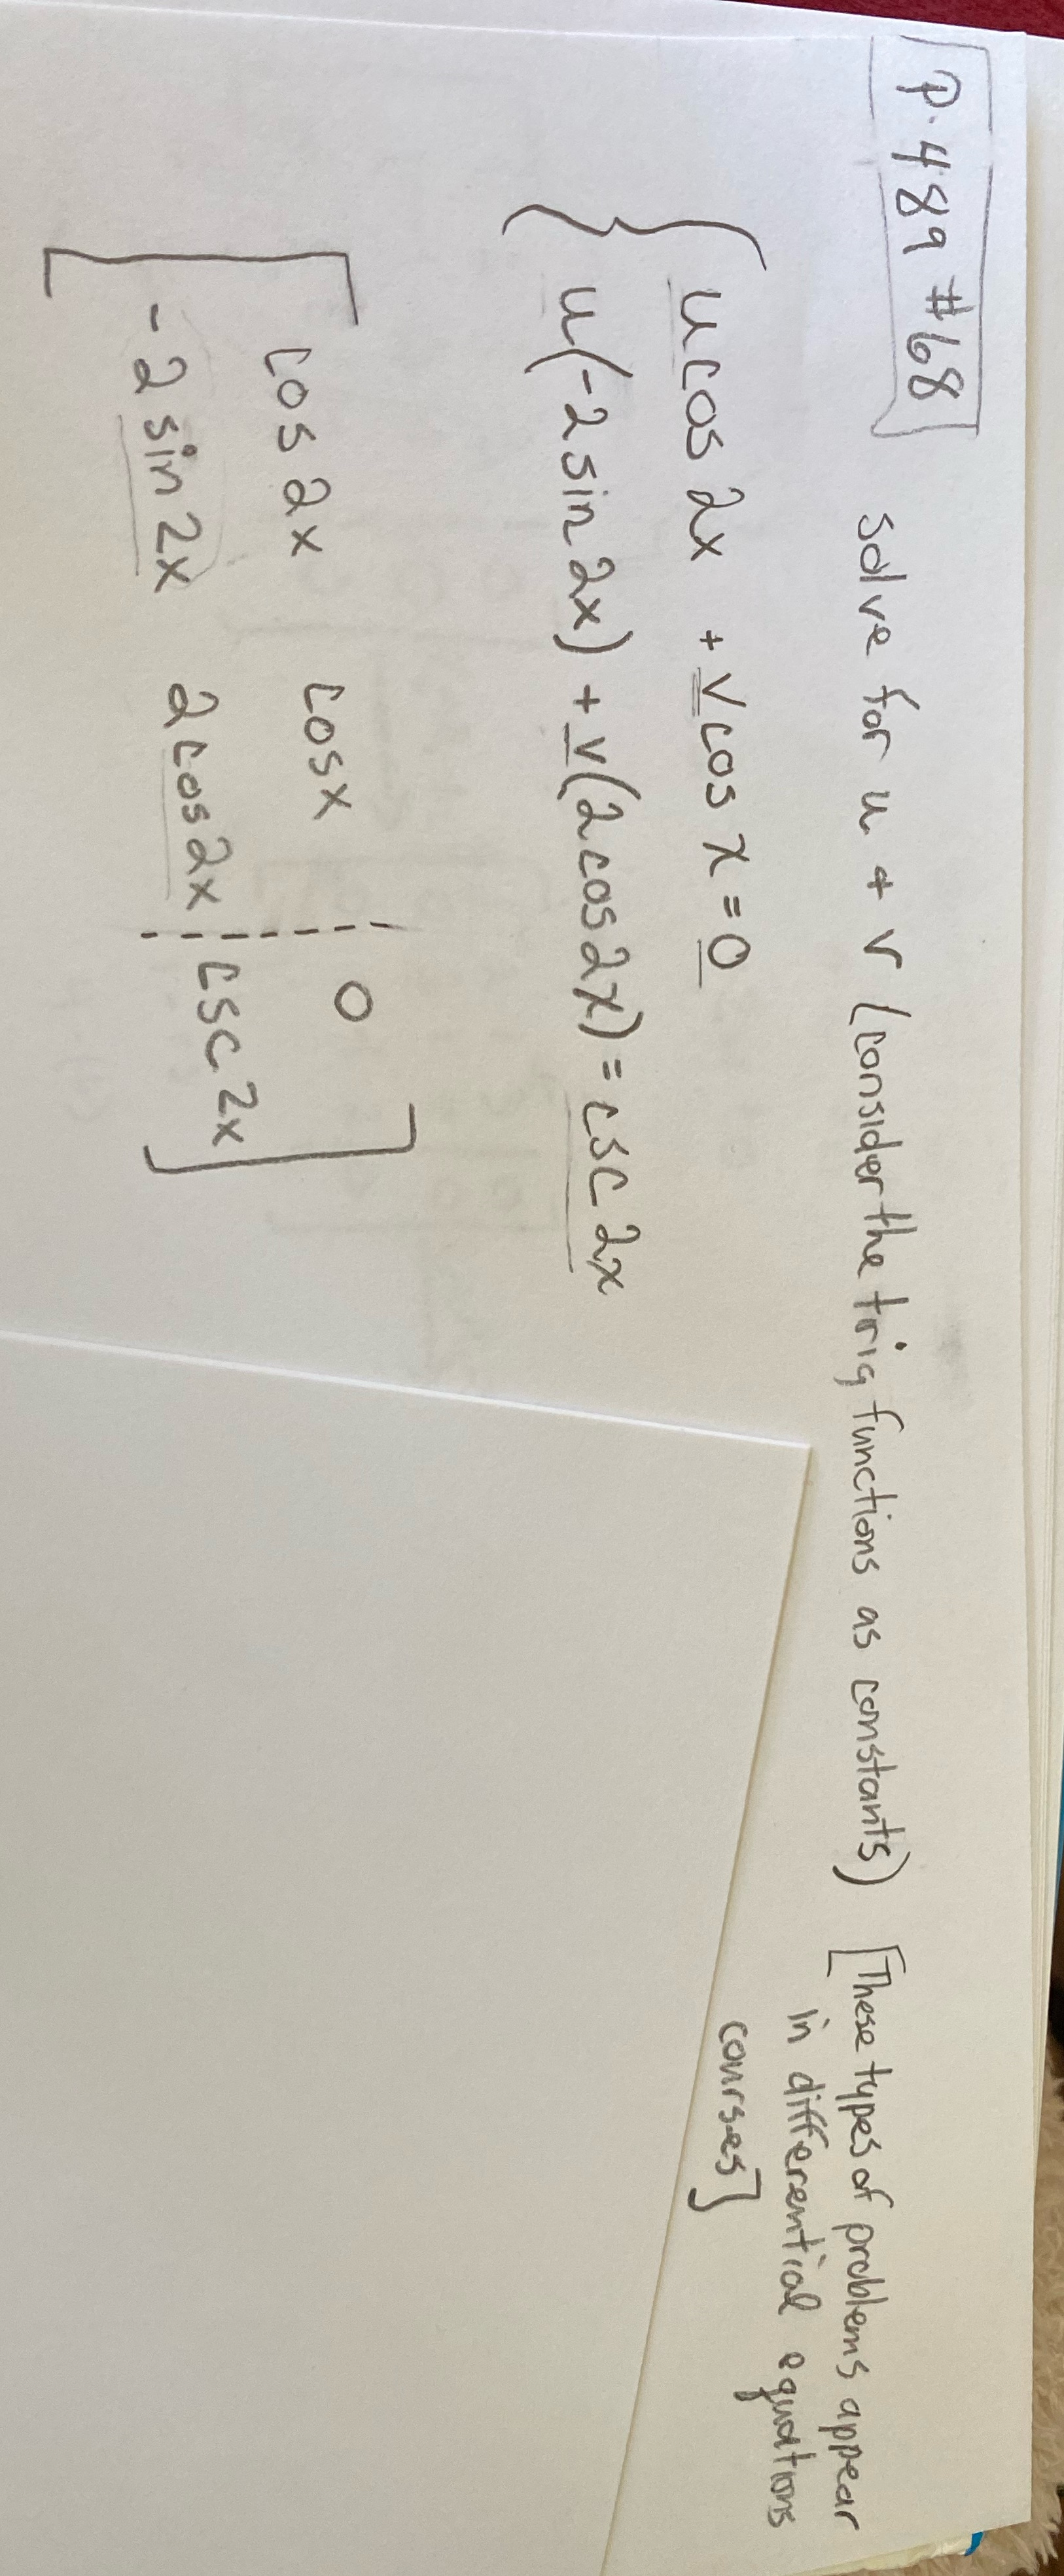 P. 489 #68
solve for u + v (consider the trig functions as constants) [These types of problems appear
in differential equations
courses]
{ u cos 2x + v cos x = 0
u(-2 sin 2x) + v(2 cos 2x) = csc 2x
[ cos 2x cos x 0
-2 sin 2x 2 cos 2x csc 2x ]